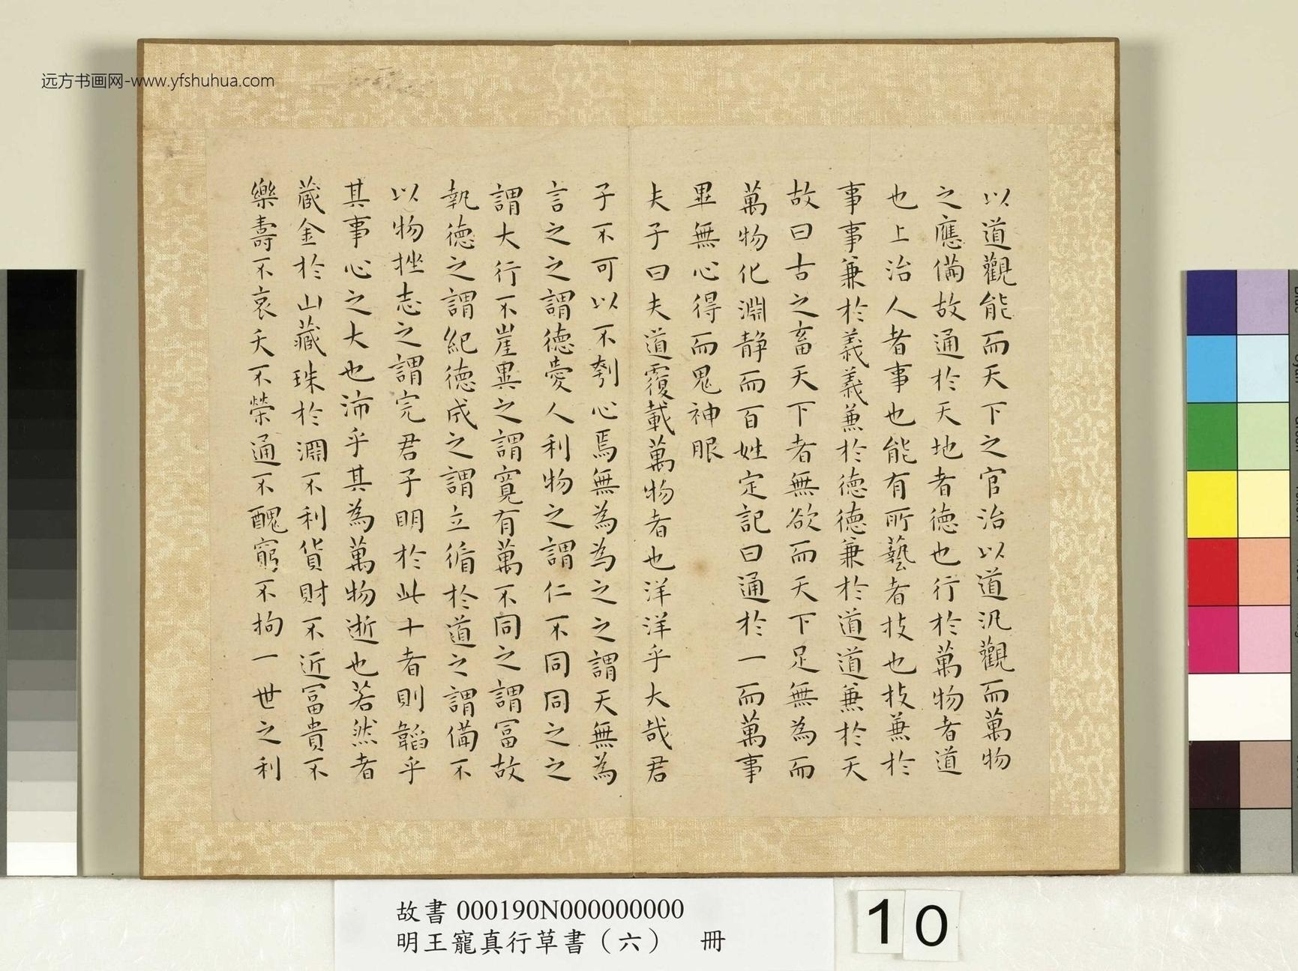 远方书画网-www.yfshuhua.com
以道觀能而天下之官治以道汎觀而萬物
之應備故通於天地者德也行於萬物者道
也上治人者事也能有所藝者技也技兼於
事事兼於義義兼於德德兼於道道兼於天
故曰古之畜天下者無欲而天下足無為而
萬物化淵静而百姓定記曰通於一而萬事
畢無心得而鬼神服
夫子曰夫道覆載萬物者也洋洋乎大哉君
子不可以不刳心焉無為為之之謂天無為
言之之謂德愛人利物之謂仁不同同之之
謂大行不崖異之謂寬有萬不同之謂冨故
執德之謂紀德成之謂立循於道之謂備不
以物挫志之謂完君子明於此十者則韜乎
其事心之大也沛乎其為萬物逝也若然者
藏金於山藏珠於淵不利貨財不近冨貴不
樂壽不哀夭不榮通不醜窮不拘一世之利
故書 000190N000000000
明王寵真行草書（六） 冊
10